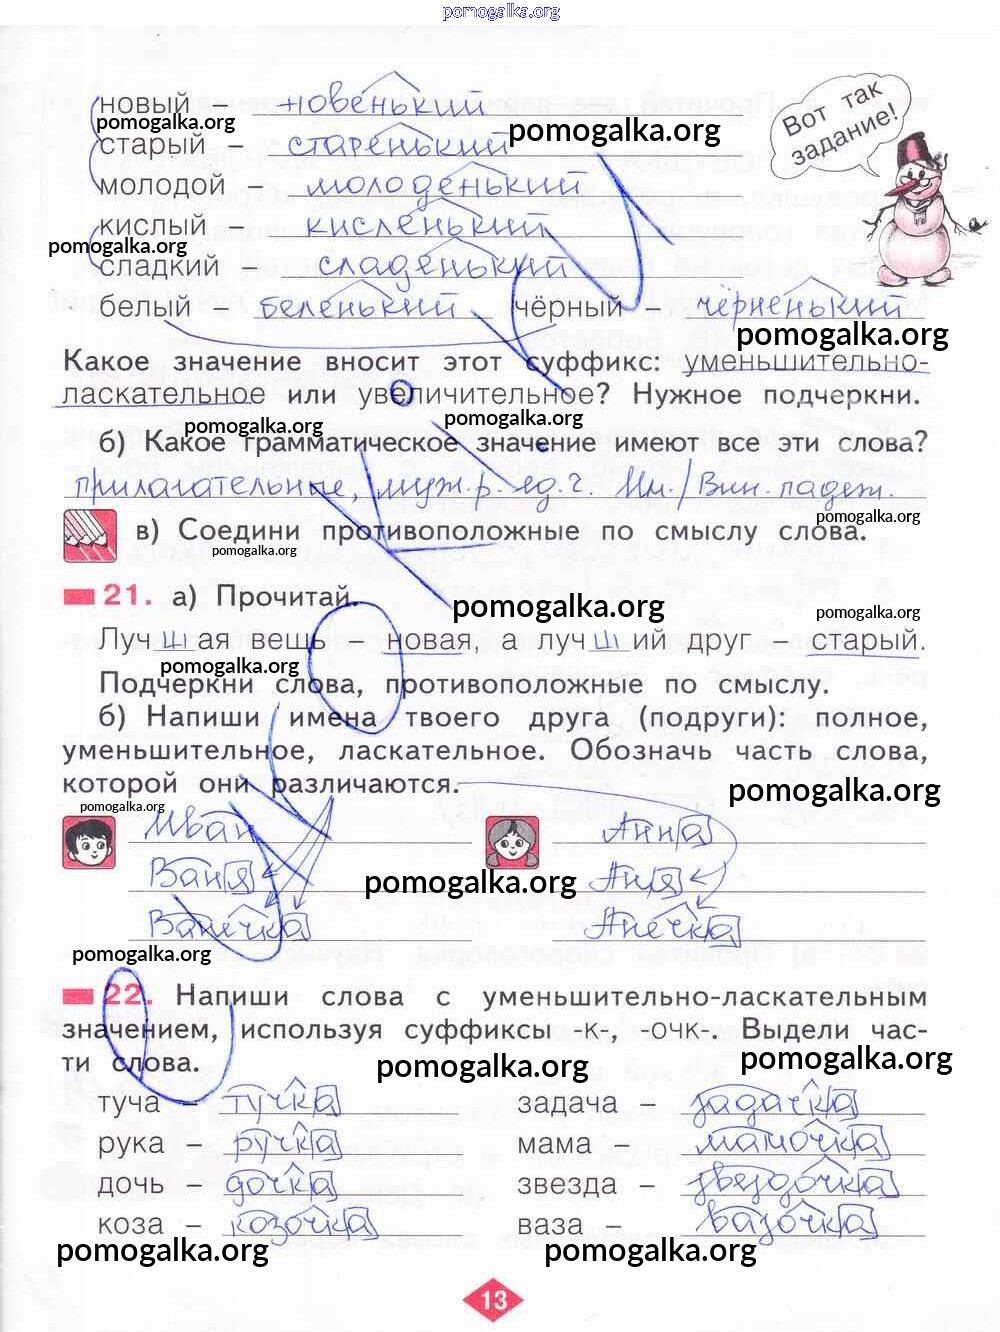 pomogalka.org
новый – новенький
Вот так
задание!
pomogalka.org
pomogalka.org
старый – старенький
молодой – молоденький
кислый кисленький
pomogalka.org
сладкий сладенький
белый – беленький чёрный – чёрненький
pomogalka.org
Какое значение вносит этот суффикс: уменьшительно-
ласкательное или увеличительное? Нужное подчеркни.
pomogalka.org pomogalka.org
б) Какое грамматическое значение имеют все эти слова?
прилагательные, муж.р. ед.ч. Им./Вин. падеж.
pomogalka.org
в) Соедини противоположные по смыслу слова.
pomogalka.org
21. а) Прочитай.
pomogalka.org pomogalka.org
Луч ш ая вещь – новая, а луч ш ий друг – старый.
pomogalka.org
Подчеркни слова, противоположные по смыслу.
б) Напиши имена твоего друга (подруги): полное,
уменьшительное, ласкательное. Обозначь часть слова,
которой они различаются.
pomogalka.org
pomogalka.org
Иван Анна
Ваня Аня
pomogalka.org
Ванечка Анечка
pomogalka.org
22. Напиши слова с уменьшительно-ласкательным
значением, используя суффиксы -к-, -очк-. Выдели час-
ти слова.
pomogalka.org pomogalka.org
туча – тучка задача – задачка
рука – ручка мама – мамочка
дочь – дочка звезда – звездочка
коза – козочка ваза – вазочка
pomogalka.org pomogalka.org
13